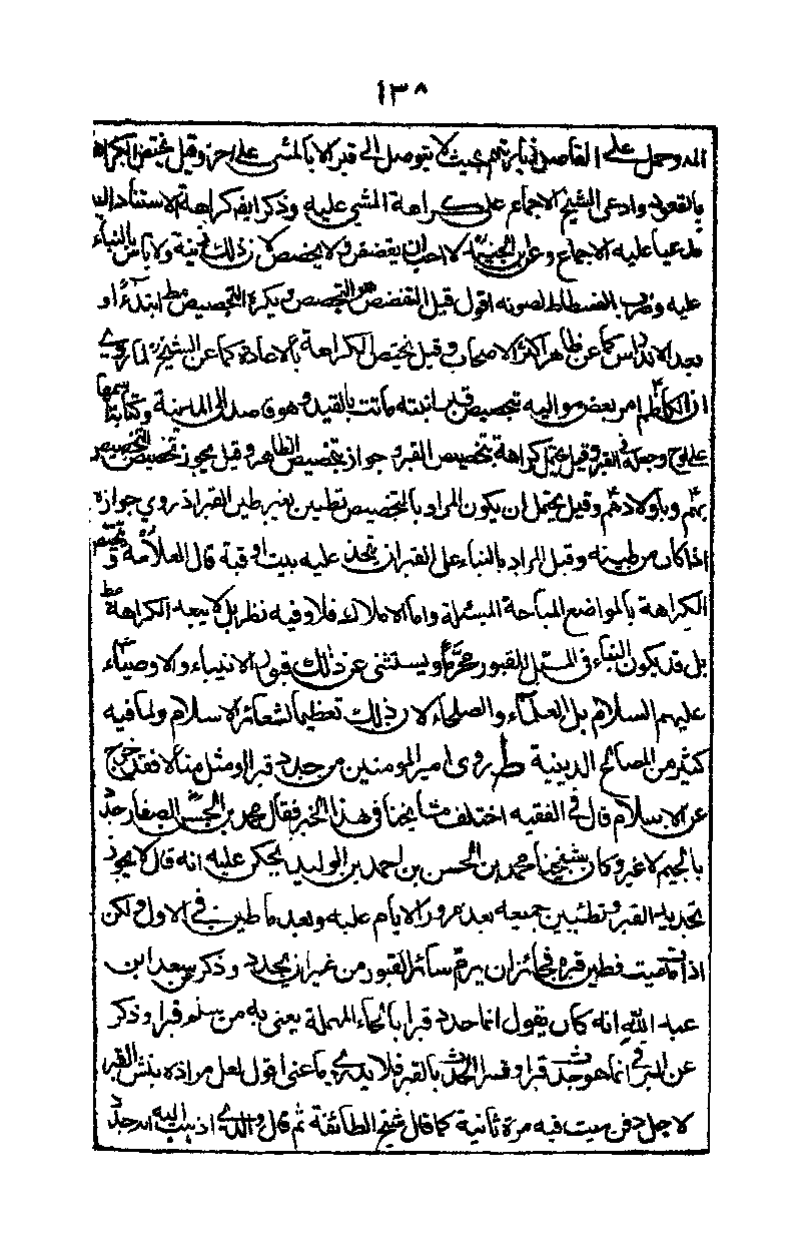 ١٣٨
وحمل على القاصد زيارتهم بحيث لا يتوصل الى قبر الا بالمشى على اخر وقيل يختص الكراهة
بالقعود وادعى الشيخ الاجماع على كراهة المشي عليه وذكر ايضا كراهة الاستناد اليه
مدعيا عليه الاجماع وعن ابن الجنيد لا احب ان يقصص ولا يجصص لان ذلك زينة ولا باس بالبناء
عليه وضرب الفسطاط لصونه اقول قيل التقصص هو التجصص ويكره التجصيص مط ابتداء او
بعد الاندراس كما عن ظاهر اكثر الاصحاب وقيل يختص الكراهة بالاعادة كما عن الشيخ لما روي
ان الكاظم امر بعض مواليه بتجصيص قبر ابنته ماتت بالفيد وهو قاصد الى المدينة وكتابة اسمها
على لوح وجعله في القبر وقيل يختص كراهة بتجصيص القبر و جواز تجصيص الظاهر وقيل يجوز تخصيص التجصيص
بهم وباولادهم وقيل يحتمل ان يكون المراد بالتجصيص تطيين بغير طين القبر اذ روي جوازه
اذا كان من طينه وقيل المراد بالبناء على القبر ان يتخذ عليه بيت او قبة قال العلامة ره و يختص
الكراهة بالمواضع المباحة المسبلة واما الاملاك فلا وفيه نظر بل لا يبعد الكراهة مط
بل قد يكون البناء في المسبل للقبور محرما ويستثنى عن ذلك قبور الانبياء والاوصياء
عليهم السلام بل العلماء والصلحاء لان ذلك تعظيما لشعائر الاسلام ولما فيه
كثير من المصالح الدينية ط روى امير المومنين من جدد قبرا او مثل مثالا فقد خرج
عن الاسلام قال في الفقيه اختلف مشايخنا في هذا الخبر فقال محمد بن الحسن الصفار جدد
بالجيم لا غير وكان شيخنا محمد بن الحسن بن احمد بن الوليد يحكى عليه انه قال لا يجوز
تجديد القبر و تطيين جميعه بعد مرور الايام عليه وبعد ما طين في الاول ولكن
اذا مات ميت فطين قبره فجائز ان يرم سائر القبور من غير ان يجدد وذكر عن سعد ابن
عبد الله انه كان يقول انما حدد قبرا بالحاء المهملة يعنى به من سنم قبرا وذكر
عن البرقي انما هو جدث قبرا وفسر الجدث بالقبر فلا يدري ما عنى اقول لعل مراده بنش القبر
لاجل دفن ميت فيه مرة ثانية كما قال شيخ الطائفة ثم قال والذي اذهب اليه انه جدد